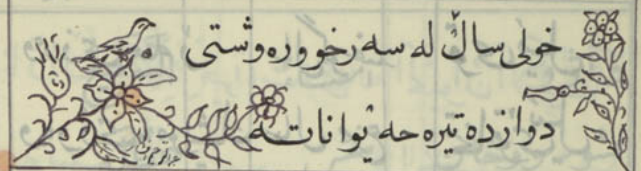 خولی ساڵ له سه رخوو ره وشتی
دوازده تیره حه یواناته